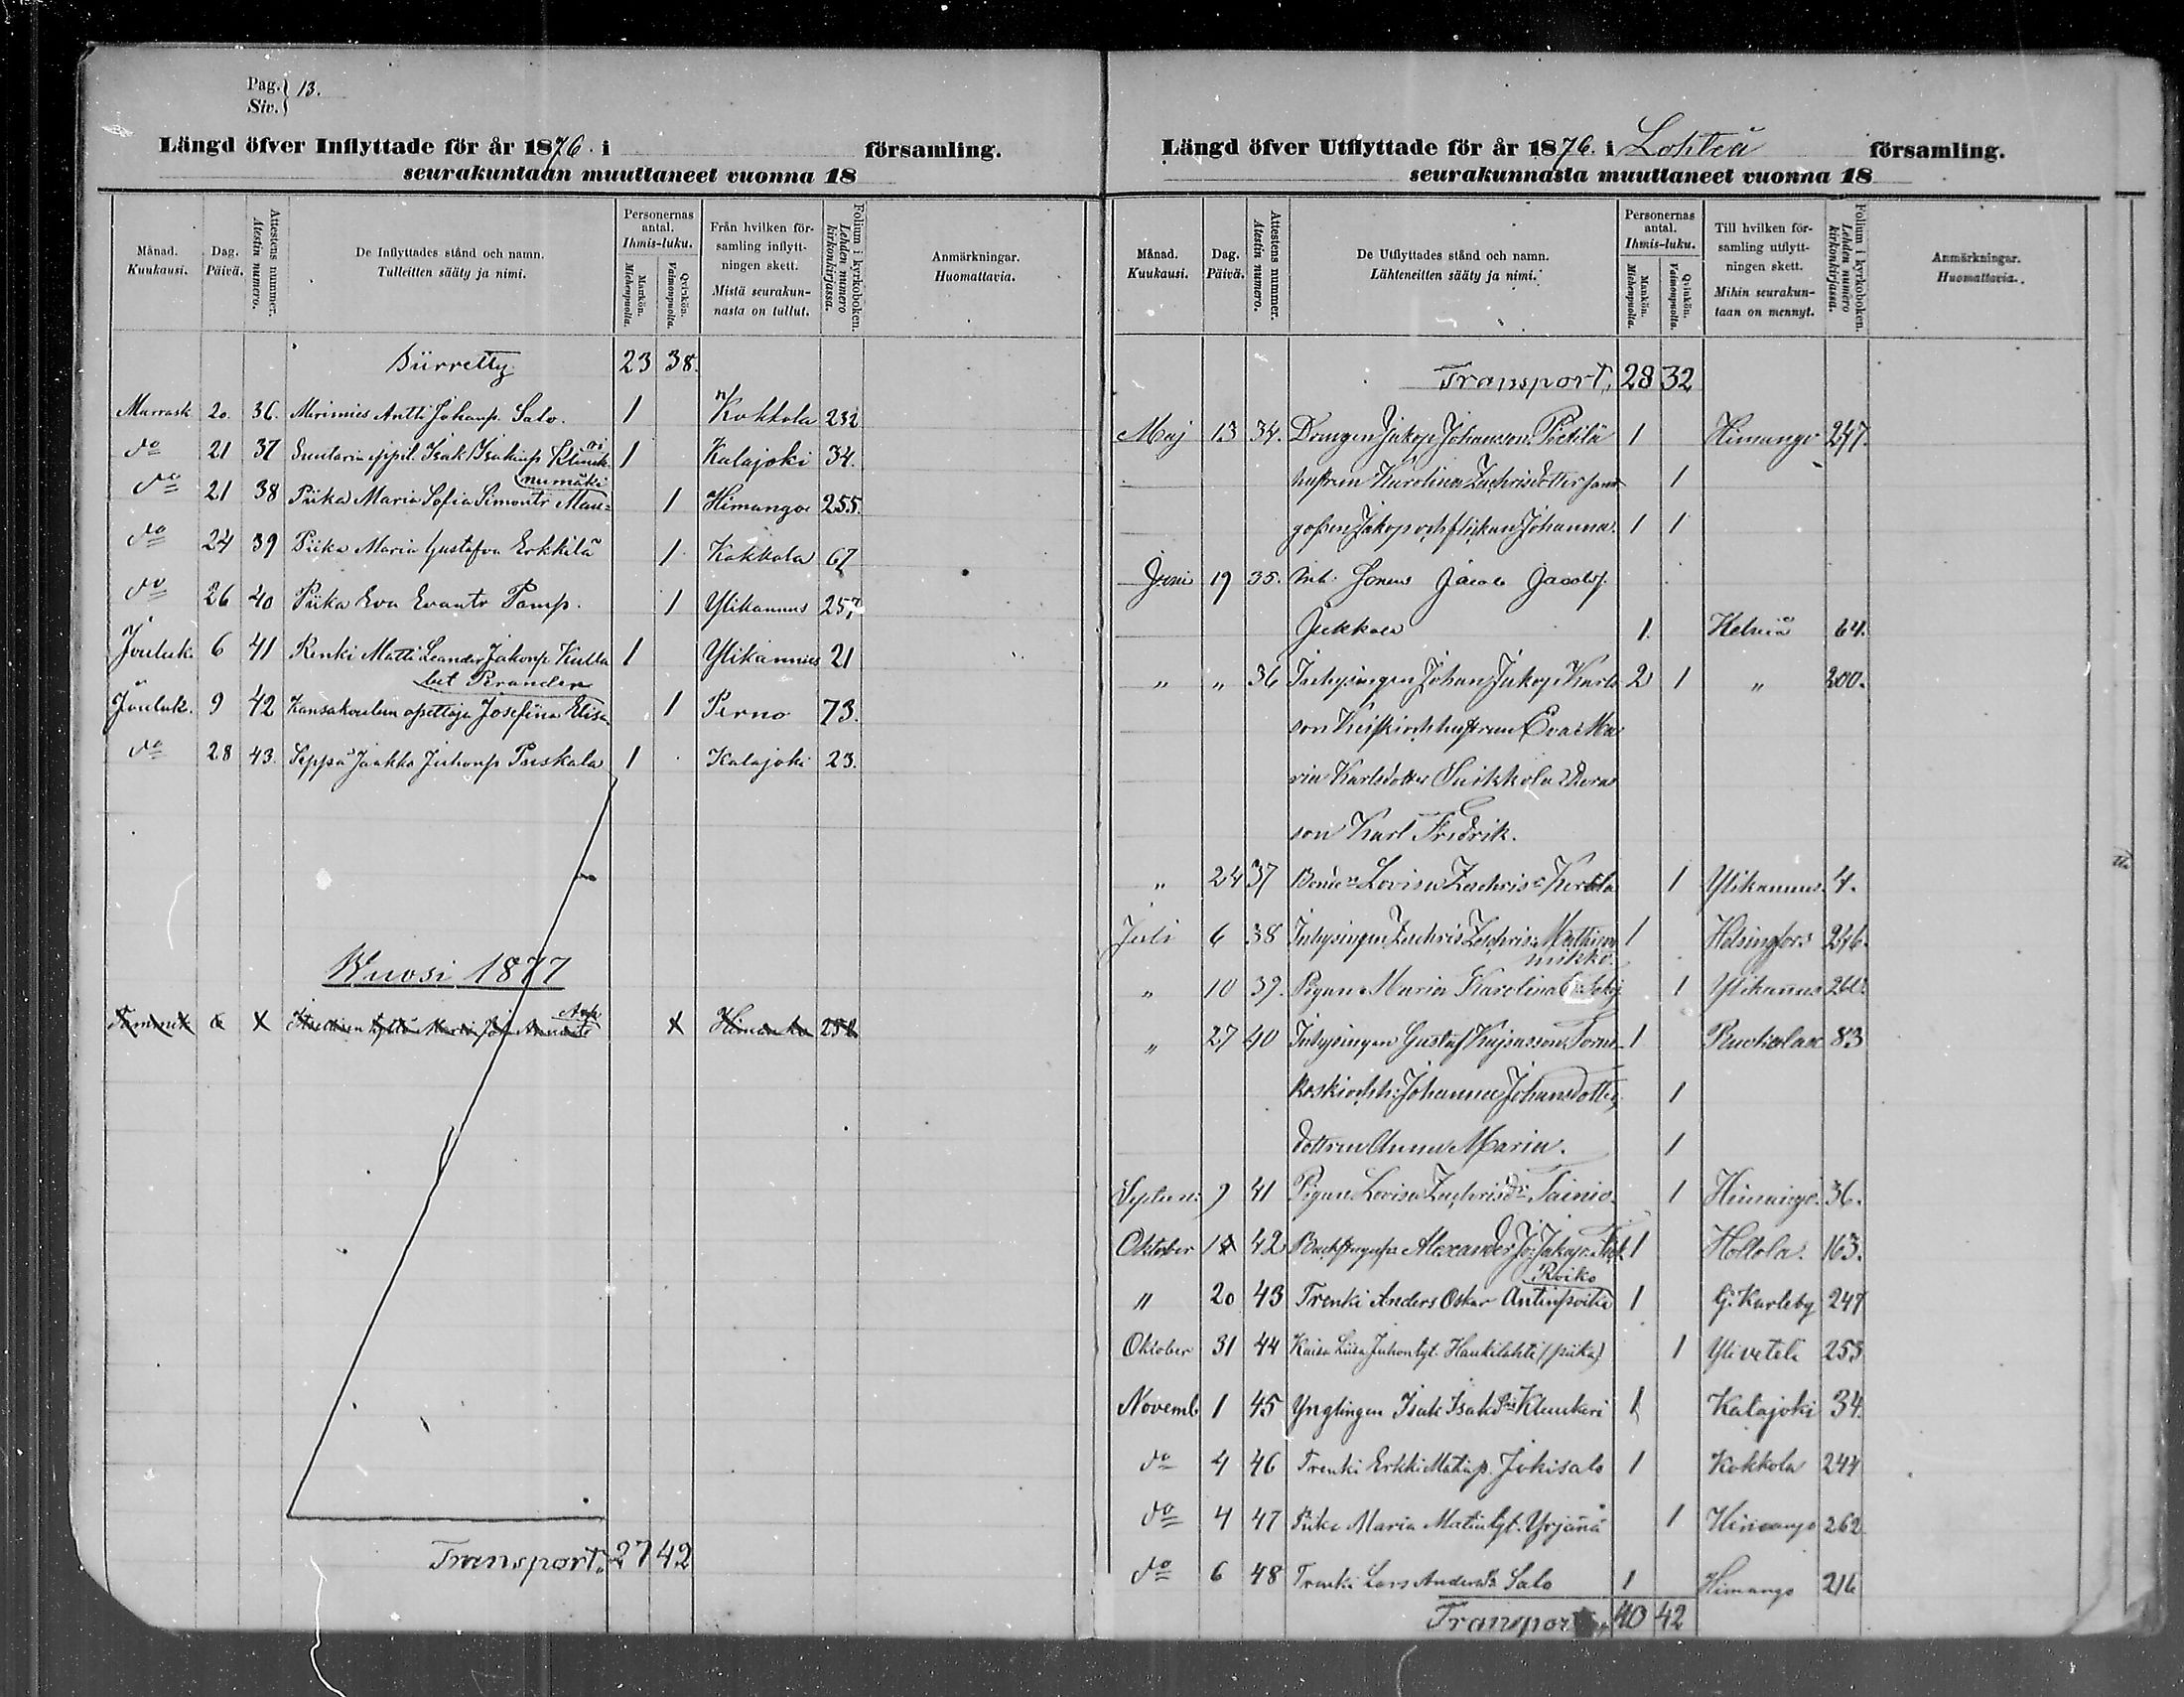 Pag. 13.
Siv.
Längd öfver Inflyttade för år 1876. i församling.
seurakuntaan muuttaneet vuonna 18
Månad. Kuukausi.
Dag. Päivä.
Attestens nummer. Atestin numero.
De Inflyttades stånd och namn. Tulleitten sääty ja nimi.
Personernas antal. Ihmis-luku.
Mankön. Miehenpuolia.
Qvinkön. Vaimonpuolia.
Från hvilken församling inflyttningen skett. Mistä seurakunnasta on tullut.
Folium i kyrkoboken. Lehden numero kirkonkirjassa.
Anmärkningar. Huomattavia.
Siirretty 23 38.
Marrask 20. 36. Merimies Antti Johansp. Salo. 1 Kokkola 232
do 21 37 Isak Isakinp 1 Kalajoki 34.
do 21 38 Piika Maria Sofia Simontr Mau= numäki 1 Himango 255.
do 24 39 Piika Maria Gustafva Erkkilä 1 Kokkola 67
do 26 40 Piika Eva Evantr Pamp. 1 Ylikannus 257
Jouluk. 6 41 Renki Matti Leander Jakonp Kulla 1 Ylikannus 21
bet Perander
Jouluk. 9 42 Kansakoulun opettaja Josefina Elisa 1 Perno 73.
do 28 43. Seppä Jaakko Juhonp Paskala 1 Kalajoki 23.
Wuosi 1877
Tammik 1 Himanka 252
Transport. 27 42
Längd öfver Utflyttade för år 1876. i Lohteå församling.
seurakunnasta muuttaneet vuonna 18
Månad. Kuukausi.
Dag. Päivä.
Attestens nummer. Atestin numero.
De Utflyttades stånd och namn. Lähteneitten sääty ja nimi.
Personernas antal. Ihmis-luku.
Mankön. Miehenpuolia.
Qvinkön. Vaimonpuolia.
Till hvilken församling utflyttningen skett. Mihin seurakuntaan on mennyt.
Folium i kyrkoboken. Lehden numero kirkonkirjassa.
Anmärkningar. Huomattavia.
Transport. 28 32
Maj 13 34. Drengen Jakop Johansson Pöctilä 1 Himango 247.
hustrun Karolina Zachrisdotter samt 1
gossen Jakop och flickan Johanna. 1 1
Juni 19 35. Inh. Sonen Jacob Jacobs.
Jukkola 1. Kelviå 64.
" " 36 Inhysingen Johan Jakop Karls 2 1 " 200.
son och hustrun Eva Ma
ria Karlsdotter Suikkola deras
son Karl Fredrik.
" 24 37 Lovisa Zachrisdr 1 Ylikannus 4.
Juli 6 38 Inhysingen Zachris Zachriss. Mathison 1 Helsingfors 246.
mikko.
" 10 39. Pigan Maria Karolina 1 Ylikannus 260.
" 27 40 Inhysingen Gustaf Kajsasson Torni 1 Ruokolax 83
koski och h: Johanna Johansdotter, 1
dottren Anna Maria. 1
Septem: 9 41 Pigan Lovisa Zachrisdr Tainio. 1 Himango. 36.
Oktober 14 42 Alexander Jo: Jakops. 1 Hollola. 163.
Roiko
" 20 43 Trenki Anders Oskar Antinpoika 1 G. Karleby 247
Oktober 31 44 Kaisa Liisa Juhontyt. Haukilahti (piika) 1 Yliveteli 253
Novemb. 1 45 Ynglingen Isak Isaks. Klemkari 1 Kalajoki 34.
do 4 46 Trenki Erkki Matinp. Jokisalo 1 Kokkola 244
do 4 47 Piika Maria Matintyt. Yrjänä 1 Himango 262
do 6 48 Trenki Lars Anderss. Salo 1 Himango 216
Transport 40 42